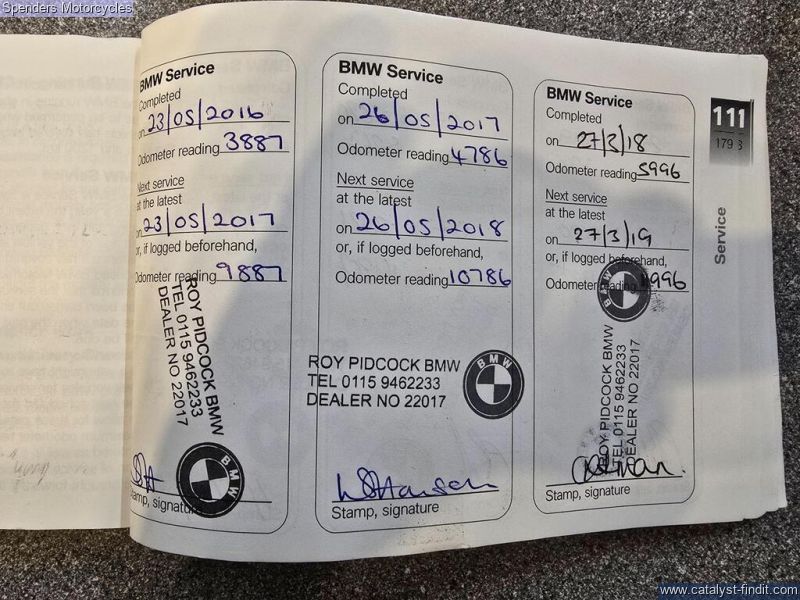 Spenders Motorcycles
BMW Service
Completed
on 23/05/2016
Odometer reading 3887
Next service
at the latest
on 23/05/2017
or, if logged beforehand,
Odometer reading 9887
ROY PIDCOCK BMW
TEL 0115 9462233
DEALER NO 22017
BMW
Stamp, signature
BMW Service
Completed
on 26/05/2017
Odometer reading 4786
Next service
at the latest
on 26/05/2018
or, if logged beforehand,
Odometer reading 10786
ROY PIDCOCK BMW
TEL 0115 9462233
DEALER NO 22017
BMW
Stamp, signature
BMW Service
Completed
on 27/3/18
Odometer reading 5996
Next service
at the latest
on 27/3/19
or, if logged beforehand,
Odometer reading 11996
BMW
ROY PIDCOCK BMW
TEL 0115 9462233
DEALER NO 22017
Stamp, signature
111
179
Service
www.catalyst-findit.com